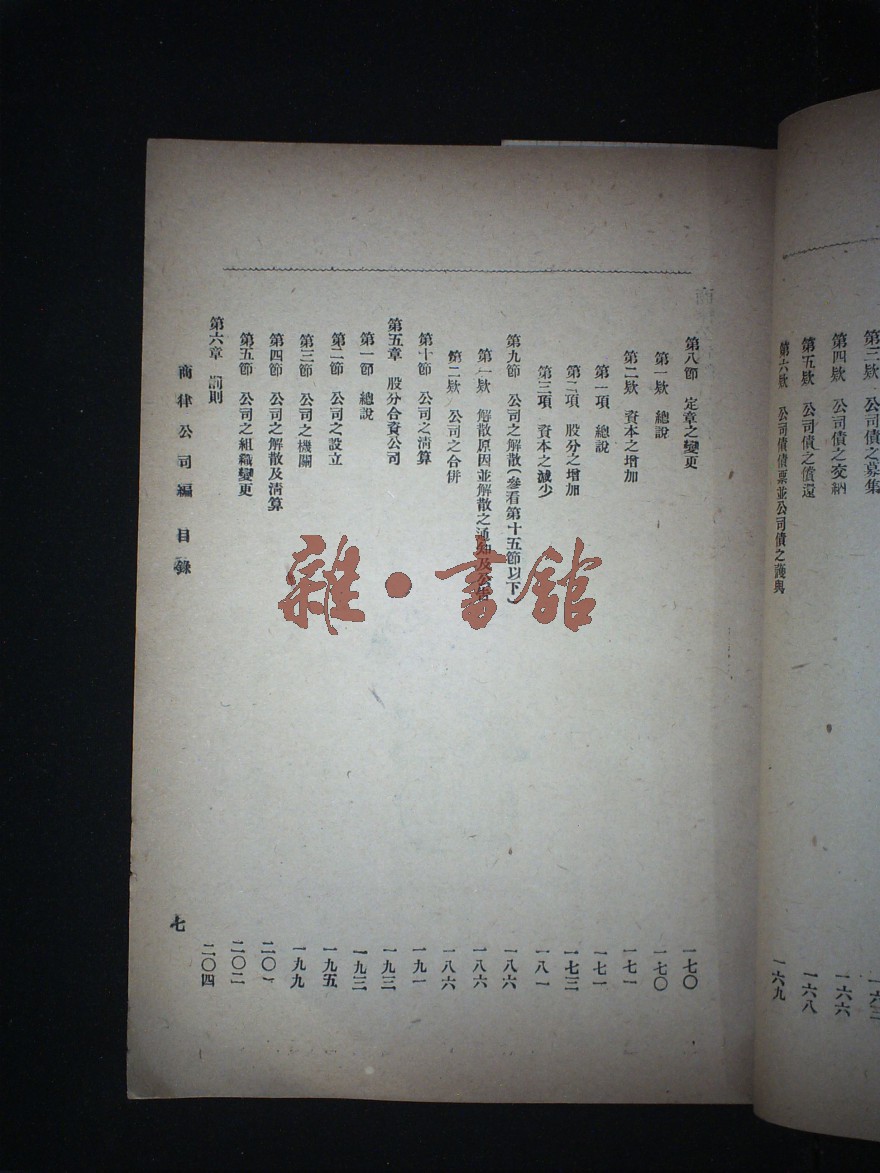 第三欵 公司債之募集 一六三
第四欵 公司債之交納 一六六
第五欵 公司債之償還 一六八
第六欵 公司債債票並公司債之護與 一六九
第八節 定章之變更 一七〇
第一欵 總說 一七〇
第二欵 資本之增加 一七一
第一項 總說 一七一
第二項 股分之增加 一七三
第三項 資本之減少 一八一
第九節 公司之解散(參看第十五節以下) 一八六
第一欵 解散原因並解散之通知及公告 一八六
第二欵 公司之合併 一八六
第十節 公司之清算 一九一
第五章 股分合資公司 一九三
第一節 總說 一九三
第二節 公司之設立 一九五
第三節 公司之機關 一九九
第四節 公司之解散及清算 二〇一
第五節 公司之組織變更 二〇二
第六章 罰則 二〇四
商律公司編 目錄 七
雜·書館